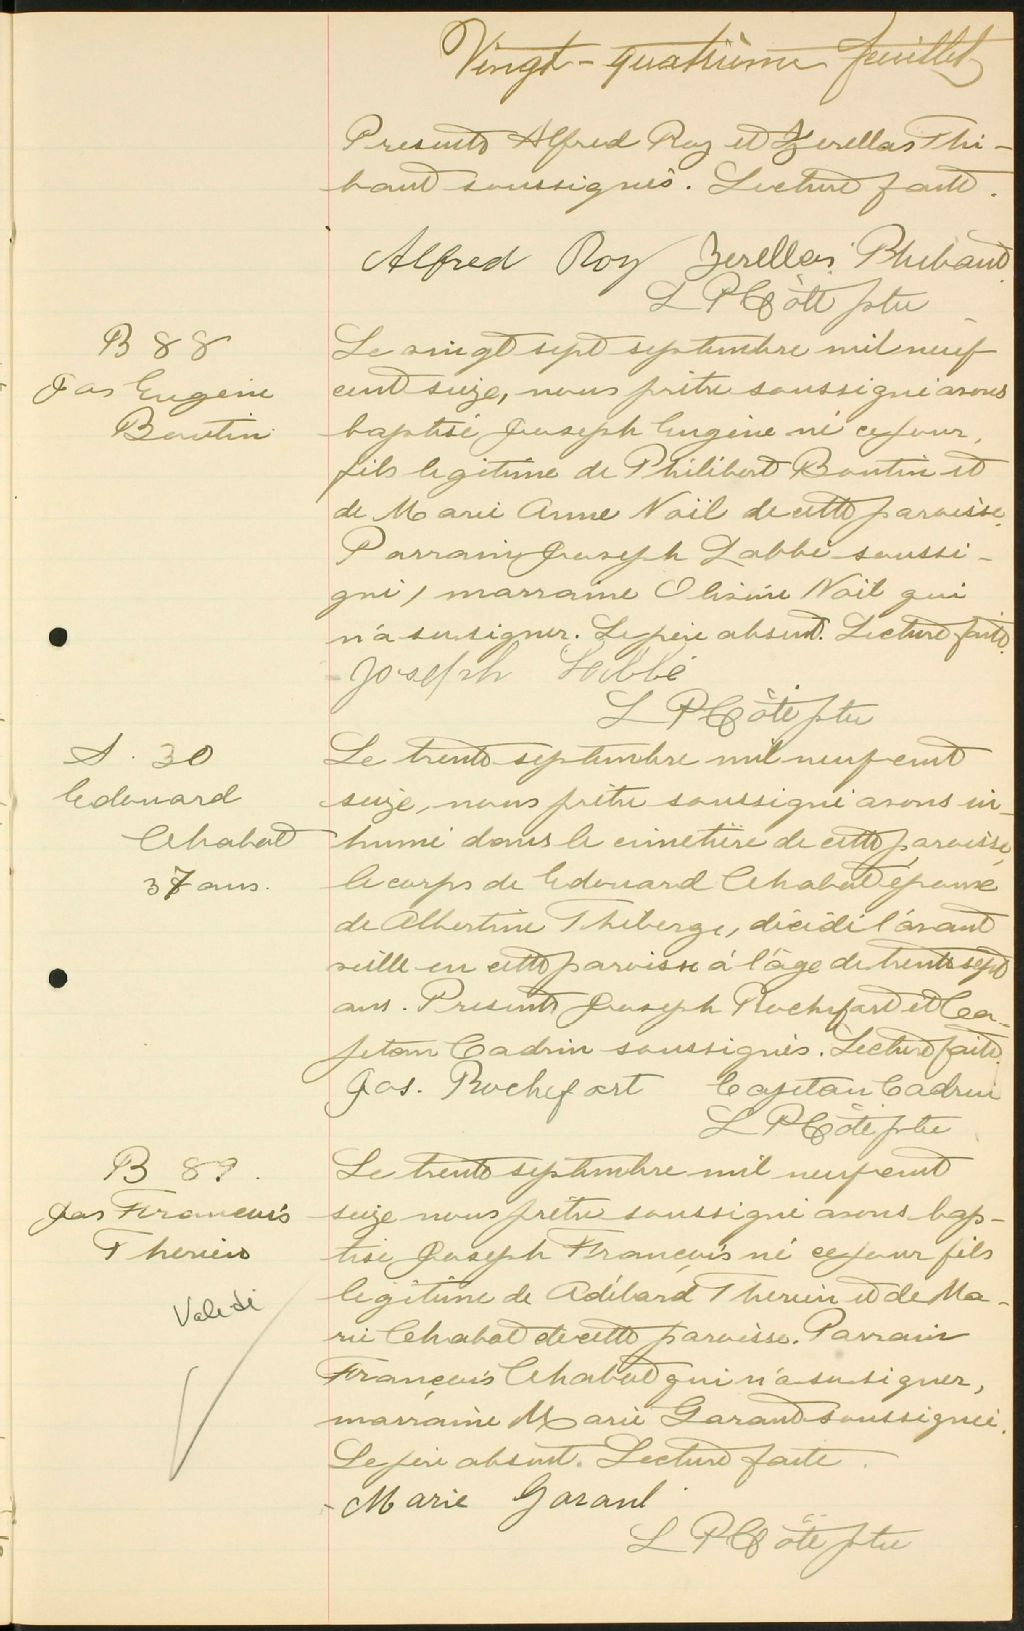 Vingt-quatrième feuillet
Presents Alfred Roy et Zerellas Thi-
baut soussignés. Lecture faite.
Alfred Roy Zerellas Thibaud
L P Côté ptre
B 88
Jos Eugène
Boutin
Le vingt sept septembre mil neuf
cent seize, nous prêtre soussigné avons
baptisé Joseph Eugène né ce jour,
fils legitime de Philibert Boutin et
de Marie Anne Noël de cette paroisse.
Parrain Joseph Labbé soussi-
gné, marraine Noël qui
n'a su signer. Le père absent. Lecture faite.
Joseph Labbé
L P Côté ptre
S. 30
Edouard
Chabot
37 ans.
Le trente septembre mil neuf cent
seize, nous prêtre soussigné avons in-
humé dans le cimetière de cette paroisse,
le corps de Edouard Chabot époux
de Albertine Théberge, décédé l'avant
veille en cette paroisse à l'âge de trente sept
ans. Presents Joseph Rochefort et Ca-
jetan Cadrin soussignés. Lecture faite.
Jos. Rochefort Cajetan Cadrin
L P Côté ptre
B 89.
Jos François
Therrien
Validé
Le trente septembre mil neuf cent
seize nous prêtre soussigné avons bap-
tisé Joseph François né ce jour fils
legitime de Adélard Therrien et de Ma-
rie Chabot de cette paroisse. Parrain
François Chabot qui n'a su signer,
marraine Marie Garand soussignée.
Le père absent. Lecture faite.
Marie Garant
L P Côté ptre